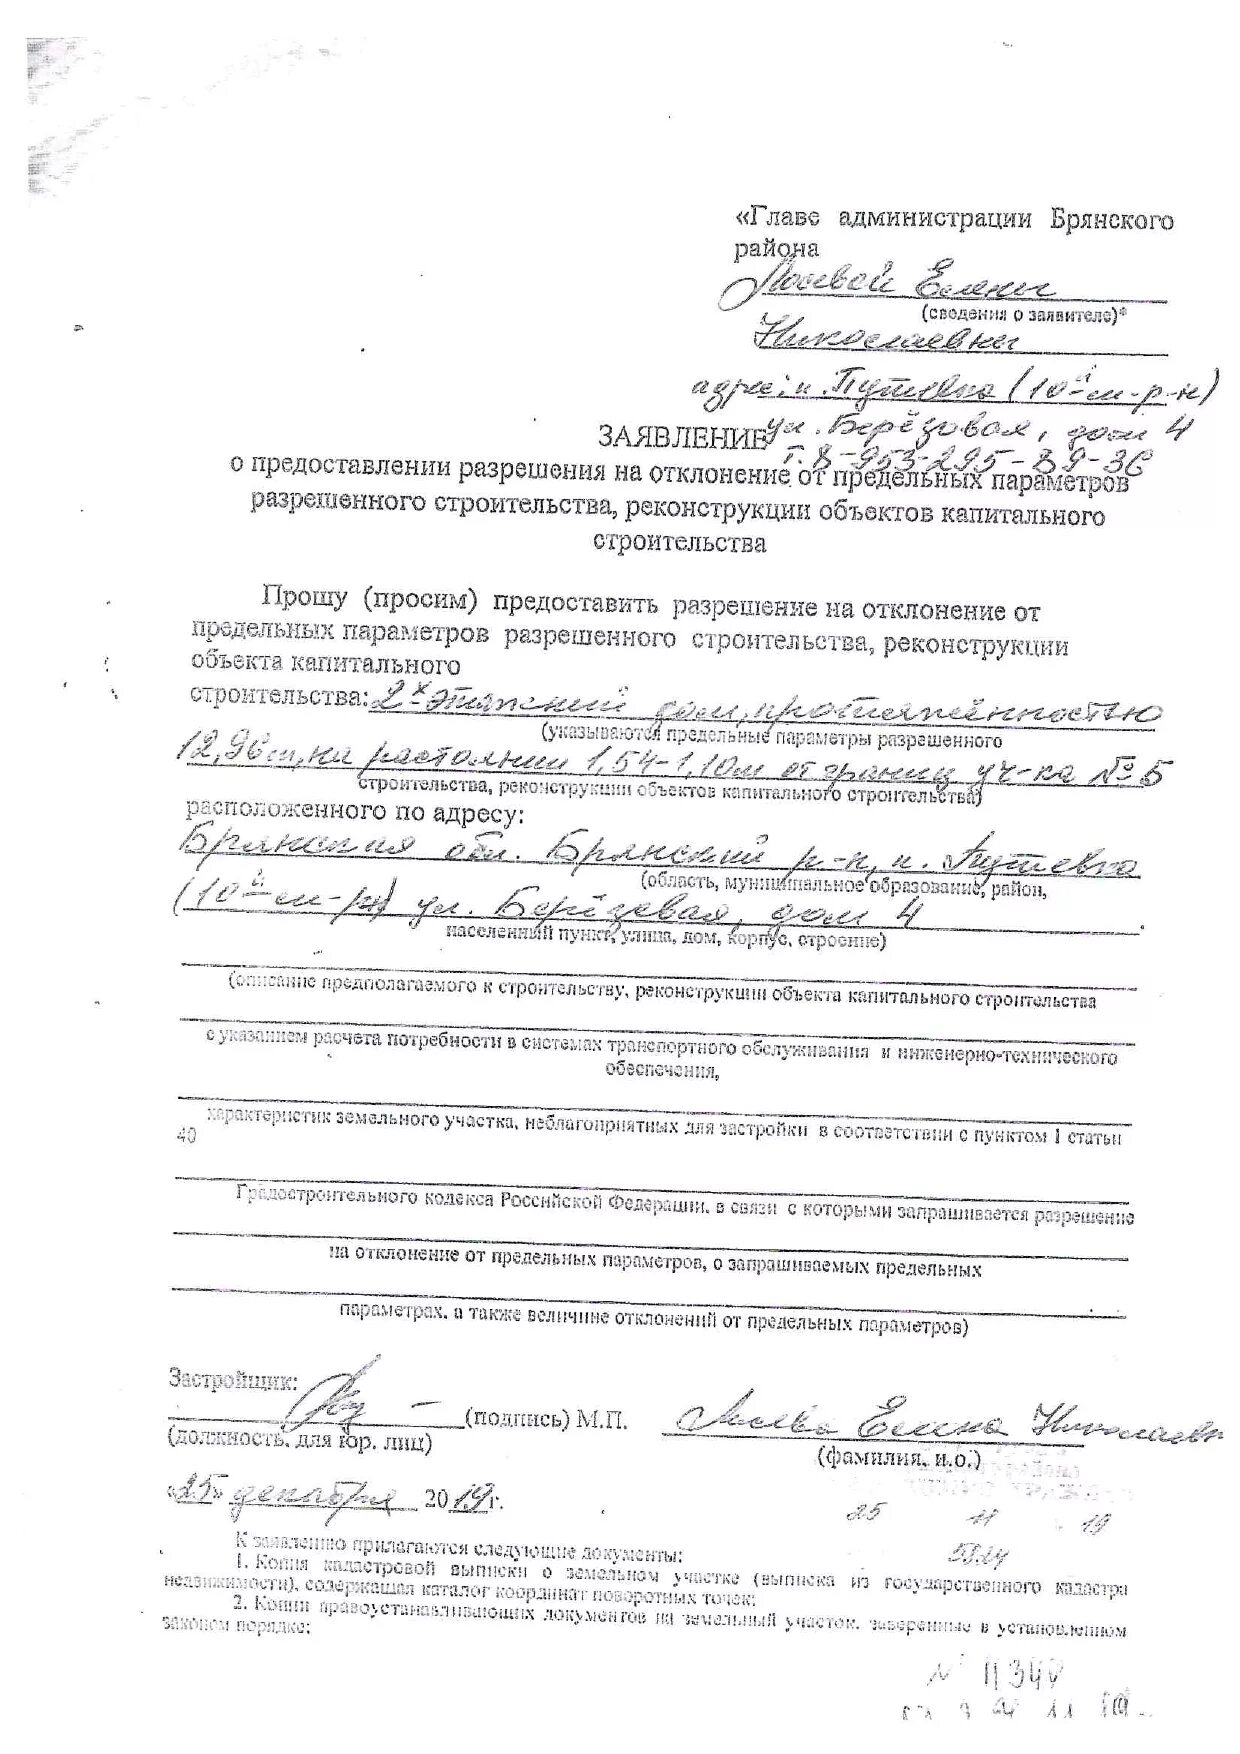 «Главе администрации Брянского
района
Лосевой Елены
(сведения о заявителе)*
Николаевны
адрес: п. Путевка (10й м-р-н)
ул. Берёзовая, дом 4
ЗАЯВЛЕНИЕ
т. 8-953-295-89-36
о предоставлении разрешения на отклонение от предельных параметров
разрешенного строительства, реконструкции объектов капитального
строительства
Прошу (просим) предоставить разрешение на отклонение от
предельных параметров разрешенного строительства, реконструкции
объекта капитального
строительства: 2х этажный дом, протяжённостью
(указываются предельные параметры разрешенного
12,96м, на растоянии 1,54-1,10м от границ уч-ка № 5
строительства, реконструкции объектов капитального строительства)
расположенного по адресу:
Брянская обл. Брянский р-н, п. Путевка
(область, муниципальное образование, район,
(10й м-рн) ул. Берёзовая, дом 4
населенный пункт, улица, дом, корпус, строение)
(описание предполагаемого к строительству, реконструкции объекта капитального строительства
с указанием расчета потребности в системах транспортного обслуживания и инженерно-технического
обеспечения,
характеристик земельного участка, неблагоприятных для застройки в соответствии с пунктом 1 статьи
40
Градостроительного кодекса Российской Федерации, в связи с которыми запрашивается разрешение
на отклонение от предельных параметров, о запрашиваемых предельных
параметрах, а также величине отклонений от предельных параметров)
Застройщик:
(подпись) М.П. Лосева Елена Николаевн
(должность, для юр. лиц)
(фамилия, и.о.)
«25» декабря 2019г.
25 11 19
К заявлению прилагаются следующие документы:
5824
1. Копия кадастровой выписки о земельном участке (выписка из государственного кадастра
недвижимости), содержащая каталог координат поворотных точек;
2. Копии правоустанавливающих документов на земельный участок, заверенные в установленном
законом порядке;
№ 11340